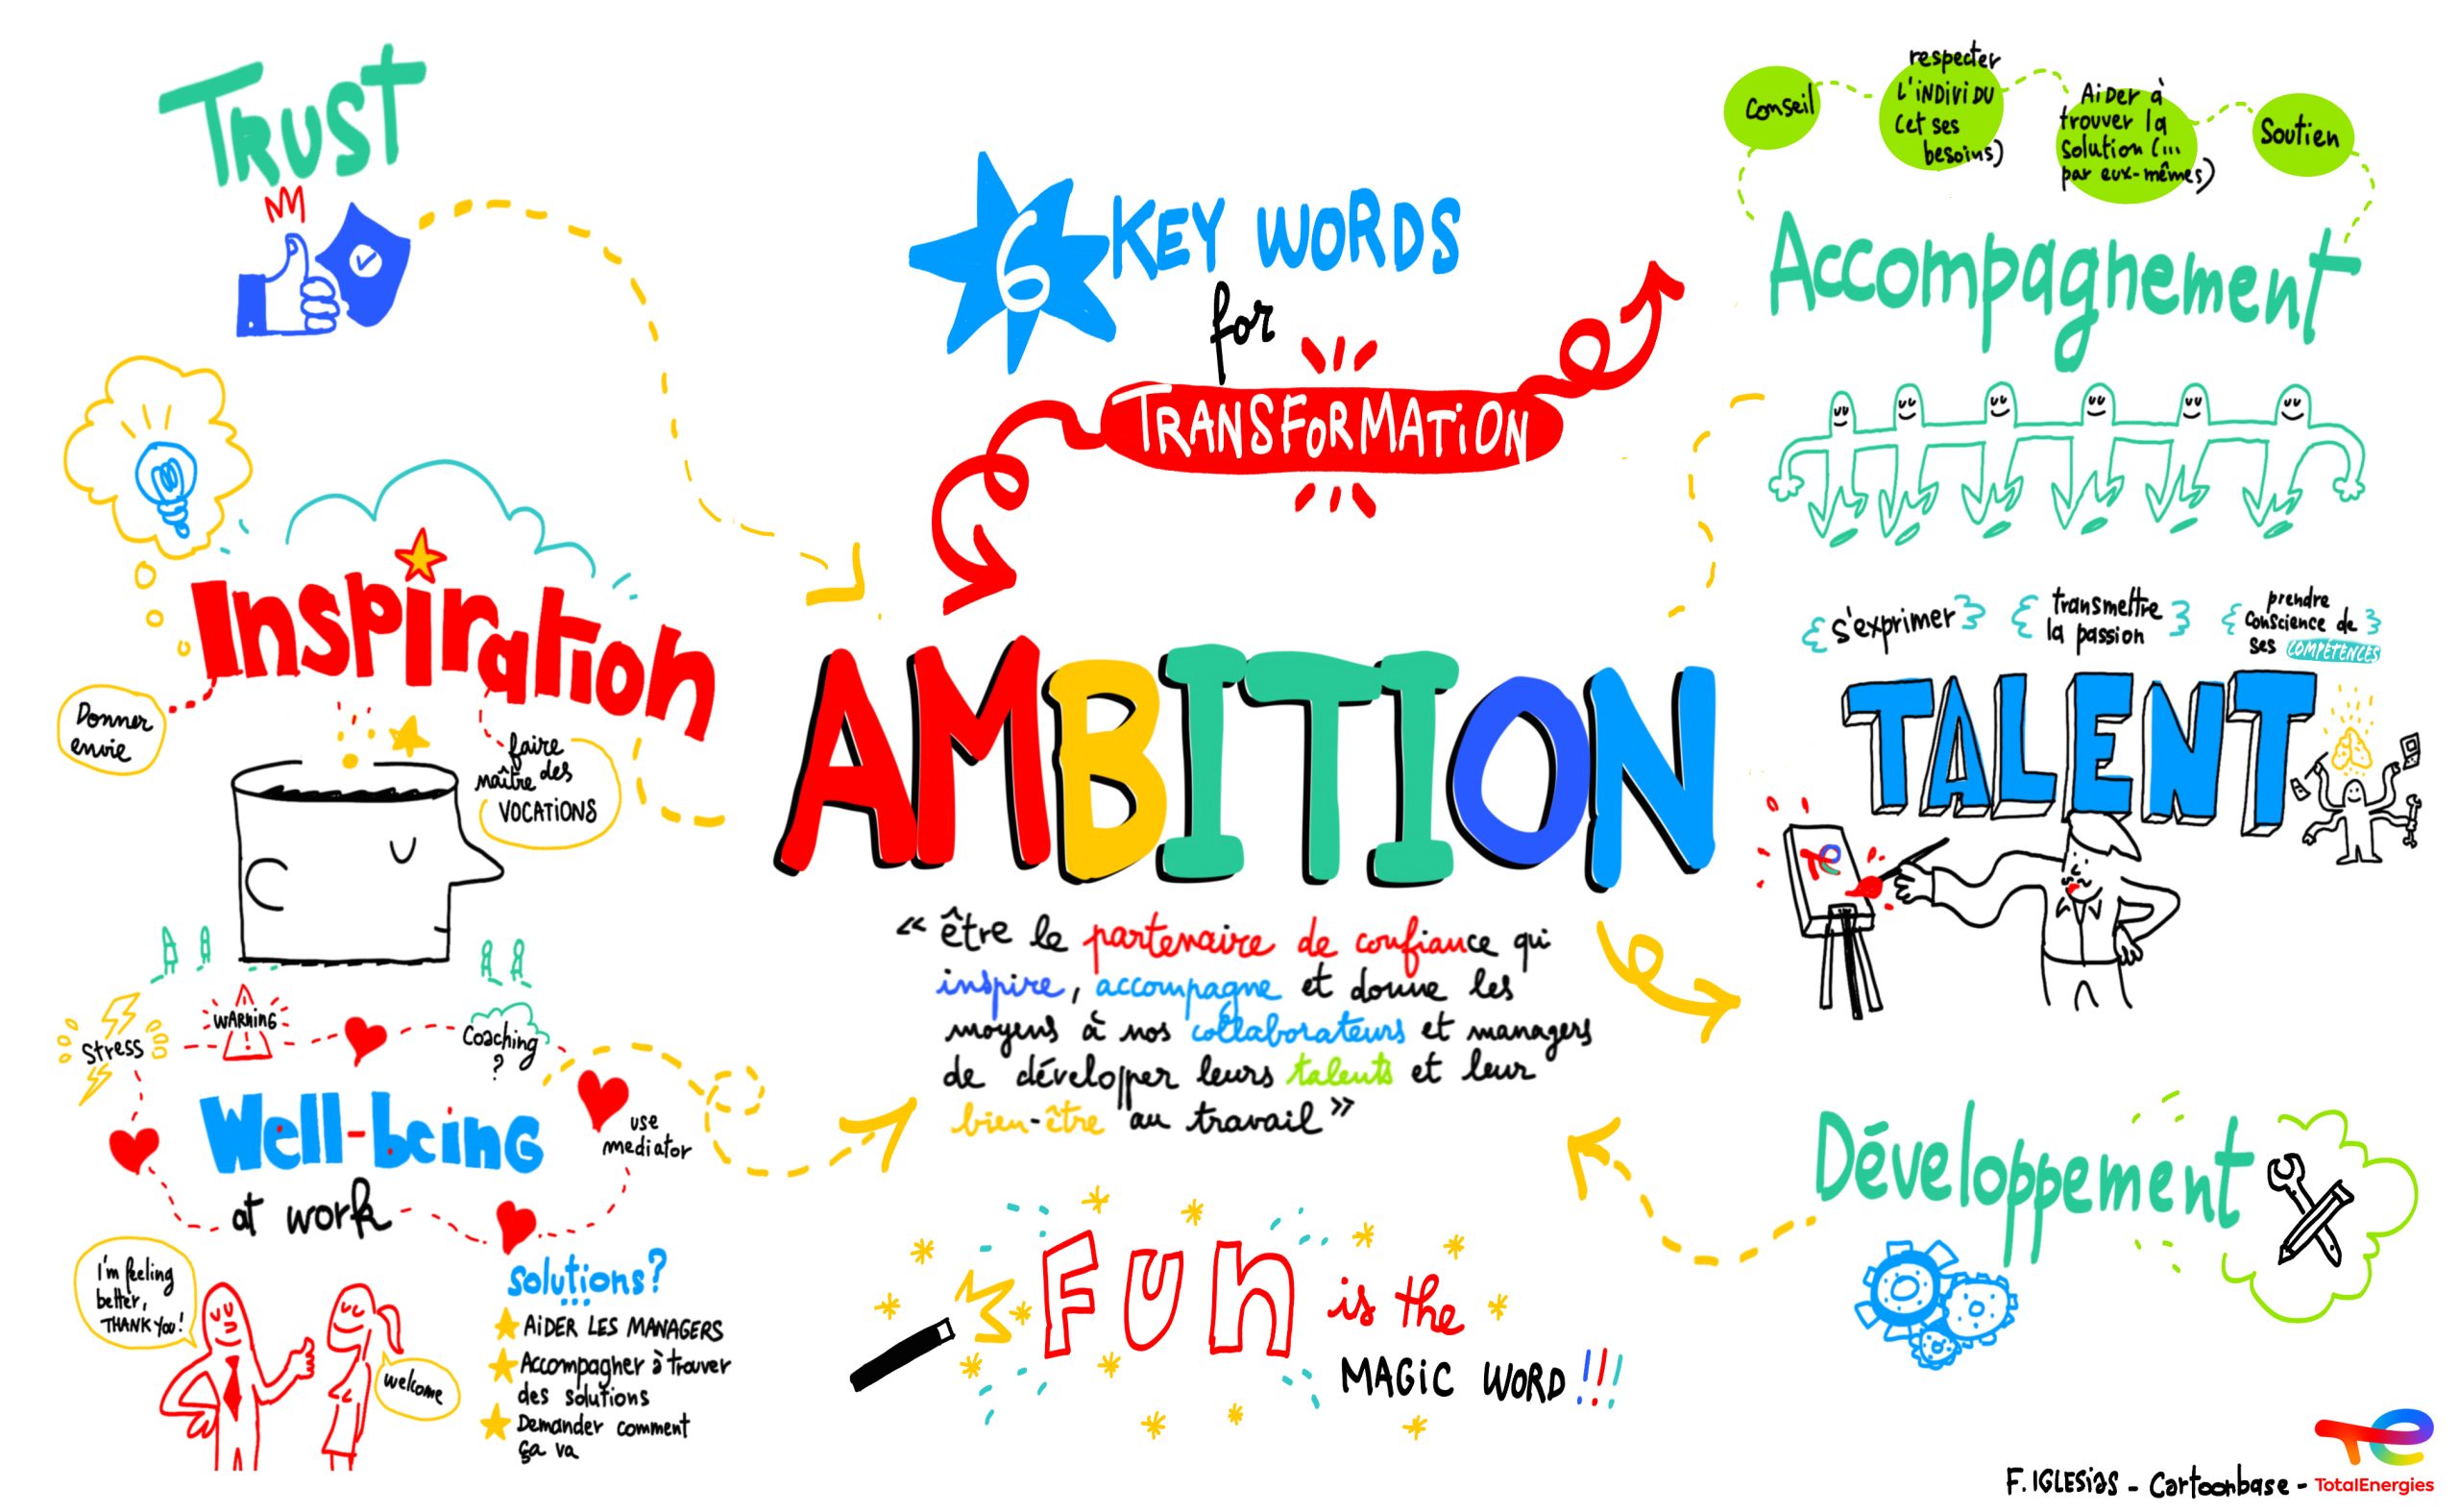 TRUST
6
KEY WORDS
for
TRANSFORMATiON
Conseil
respecter
L'iNDiViDU
(et ses
besoins)
AiDer à
trouver la
solution (...
par eux-mêmes)
Soutien
Accompagnement
Inspiration
Donner
envie
faire
naître des
VOCATiONS
AMBITION
« être le partenaire de confiance qui
inspire, accompagne et donne les
moyens à nos collaborateurs et managers
de développer leurs talents et leur
bien-être au travail »
s'exprimer
transmettre
la passion
prendre
conscience de
ses COMPÉTENCES
TALENT
Stress
WARNiNG
!
Coaching
?
use
mediator
Well-being
at work
I'm feeling
better,
THANK You!
welcome
solutions?
AiDER LES MANAGERS
Accompagner à trouver
des solutions
Demander comment
ça va
FUN is the
MAGiC WORD!!!
Développement
F. IGLESias - Cartoonbase - TotalEnergies